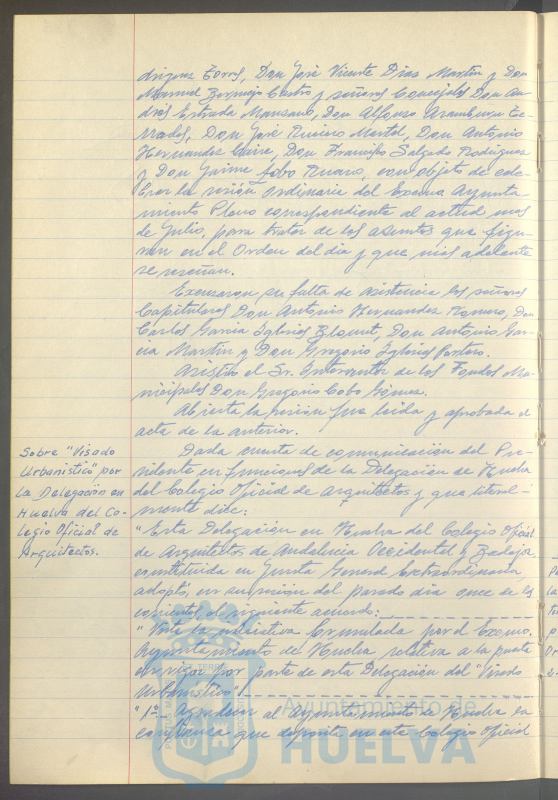 driguez Torres, Don José Vicente Díaz Martín y Don
Manuel Bermejo Castro y señores Concejales Don An-
drés Estrada Manzano, Don Alfonso Aramburu Te-
rrades, Don José Rivero Martel, Don Antonio
Hernandez Don Francisco Salgado Rodriguez
y Don Jaime con objeto de cele-
brar la sesión ordinaria del Excmo Ayunta-
miento Pleno correspondiente al actual mes
de Julio, para tratar de los asuntos que figu-
ran en el Orden del dia y que más adelante
se reseñan.
Excusaron su falta de asistencia los señores
Capitulares Don Antonio Hernandez Romero, Don
Carlos Garcia Iglesias Don Antonio Gar-
cia Martín y Don Gregorio Iglesias
Asistió el Sr. Interventor de los Fondos Mu-
nicipales Don Gregorio Cobo Gómez.
Abierta la sesión fue leida y aprobada el
acta de la anterior.
Sobre "Visado
Urbanistico" por
la Delegación en
Huelva del Co-
legio Oficial de
Arquitectos.
Dada cuenta de comunicación del Pre-
sidente en funciones de la Delegación de Huelva
del Colegio Oficial de Arquitectos y que literal-
mente dice:
"Esta Delegación en Huelva del Colegio Oficial
de Arquitectos de Andalucia Occidental y Badajoz
constituida en Junta General Extraordinaria,
adoptó, en su sesión del pasado dia once de los
corrientes, el siguiente acuerdo:
"Vista la formulada por el Excmo.
Ayuntamiento de Huelva relativa a la puesta
en vigor por parte de esta Delegación del "Visado
Urbanistico"
"1º. Agradecer al Ayuntamiento de Huelva la
confianza que deposita en este Colegio Oficial
Ayuntamiento de
HUELVA